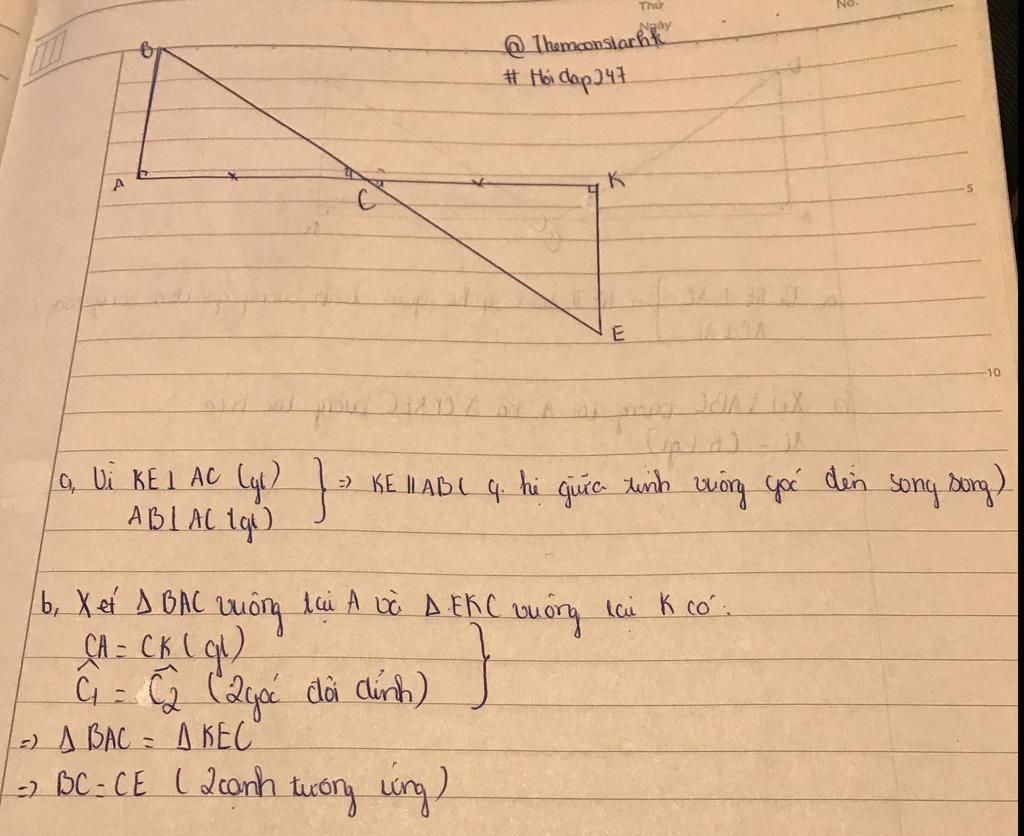 Thứ
No.
Ngày
@ Themoonstarhk
# Hoidap247
B
A
C
K
5
E
10
a, Vì KE⊥ AC (gt) } => KE // AB ( q. hệ giữa tính vuông góc đến song song)
AB⊥ AC (gt)
b, Xét Δ BAC vuông tại A và Δ EKC vuông tại K có:
CA = CK ( gt) }
Ĉ1 = Ĉ2 ( 2 góc đối đỉnh)
=> Δ BAC = Δ KEC
=> BC = CE ( 2 cạnh tương ứng)